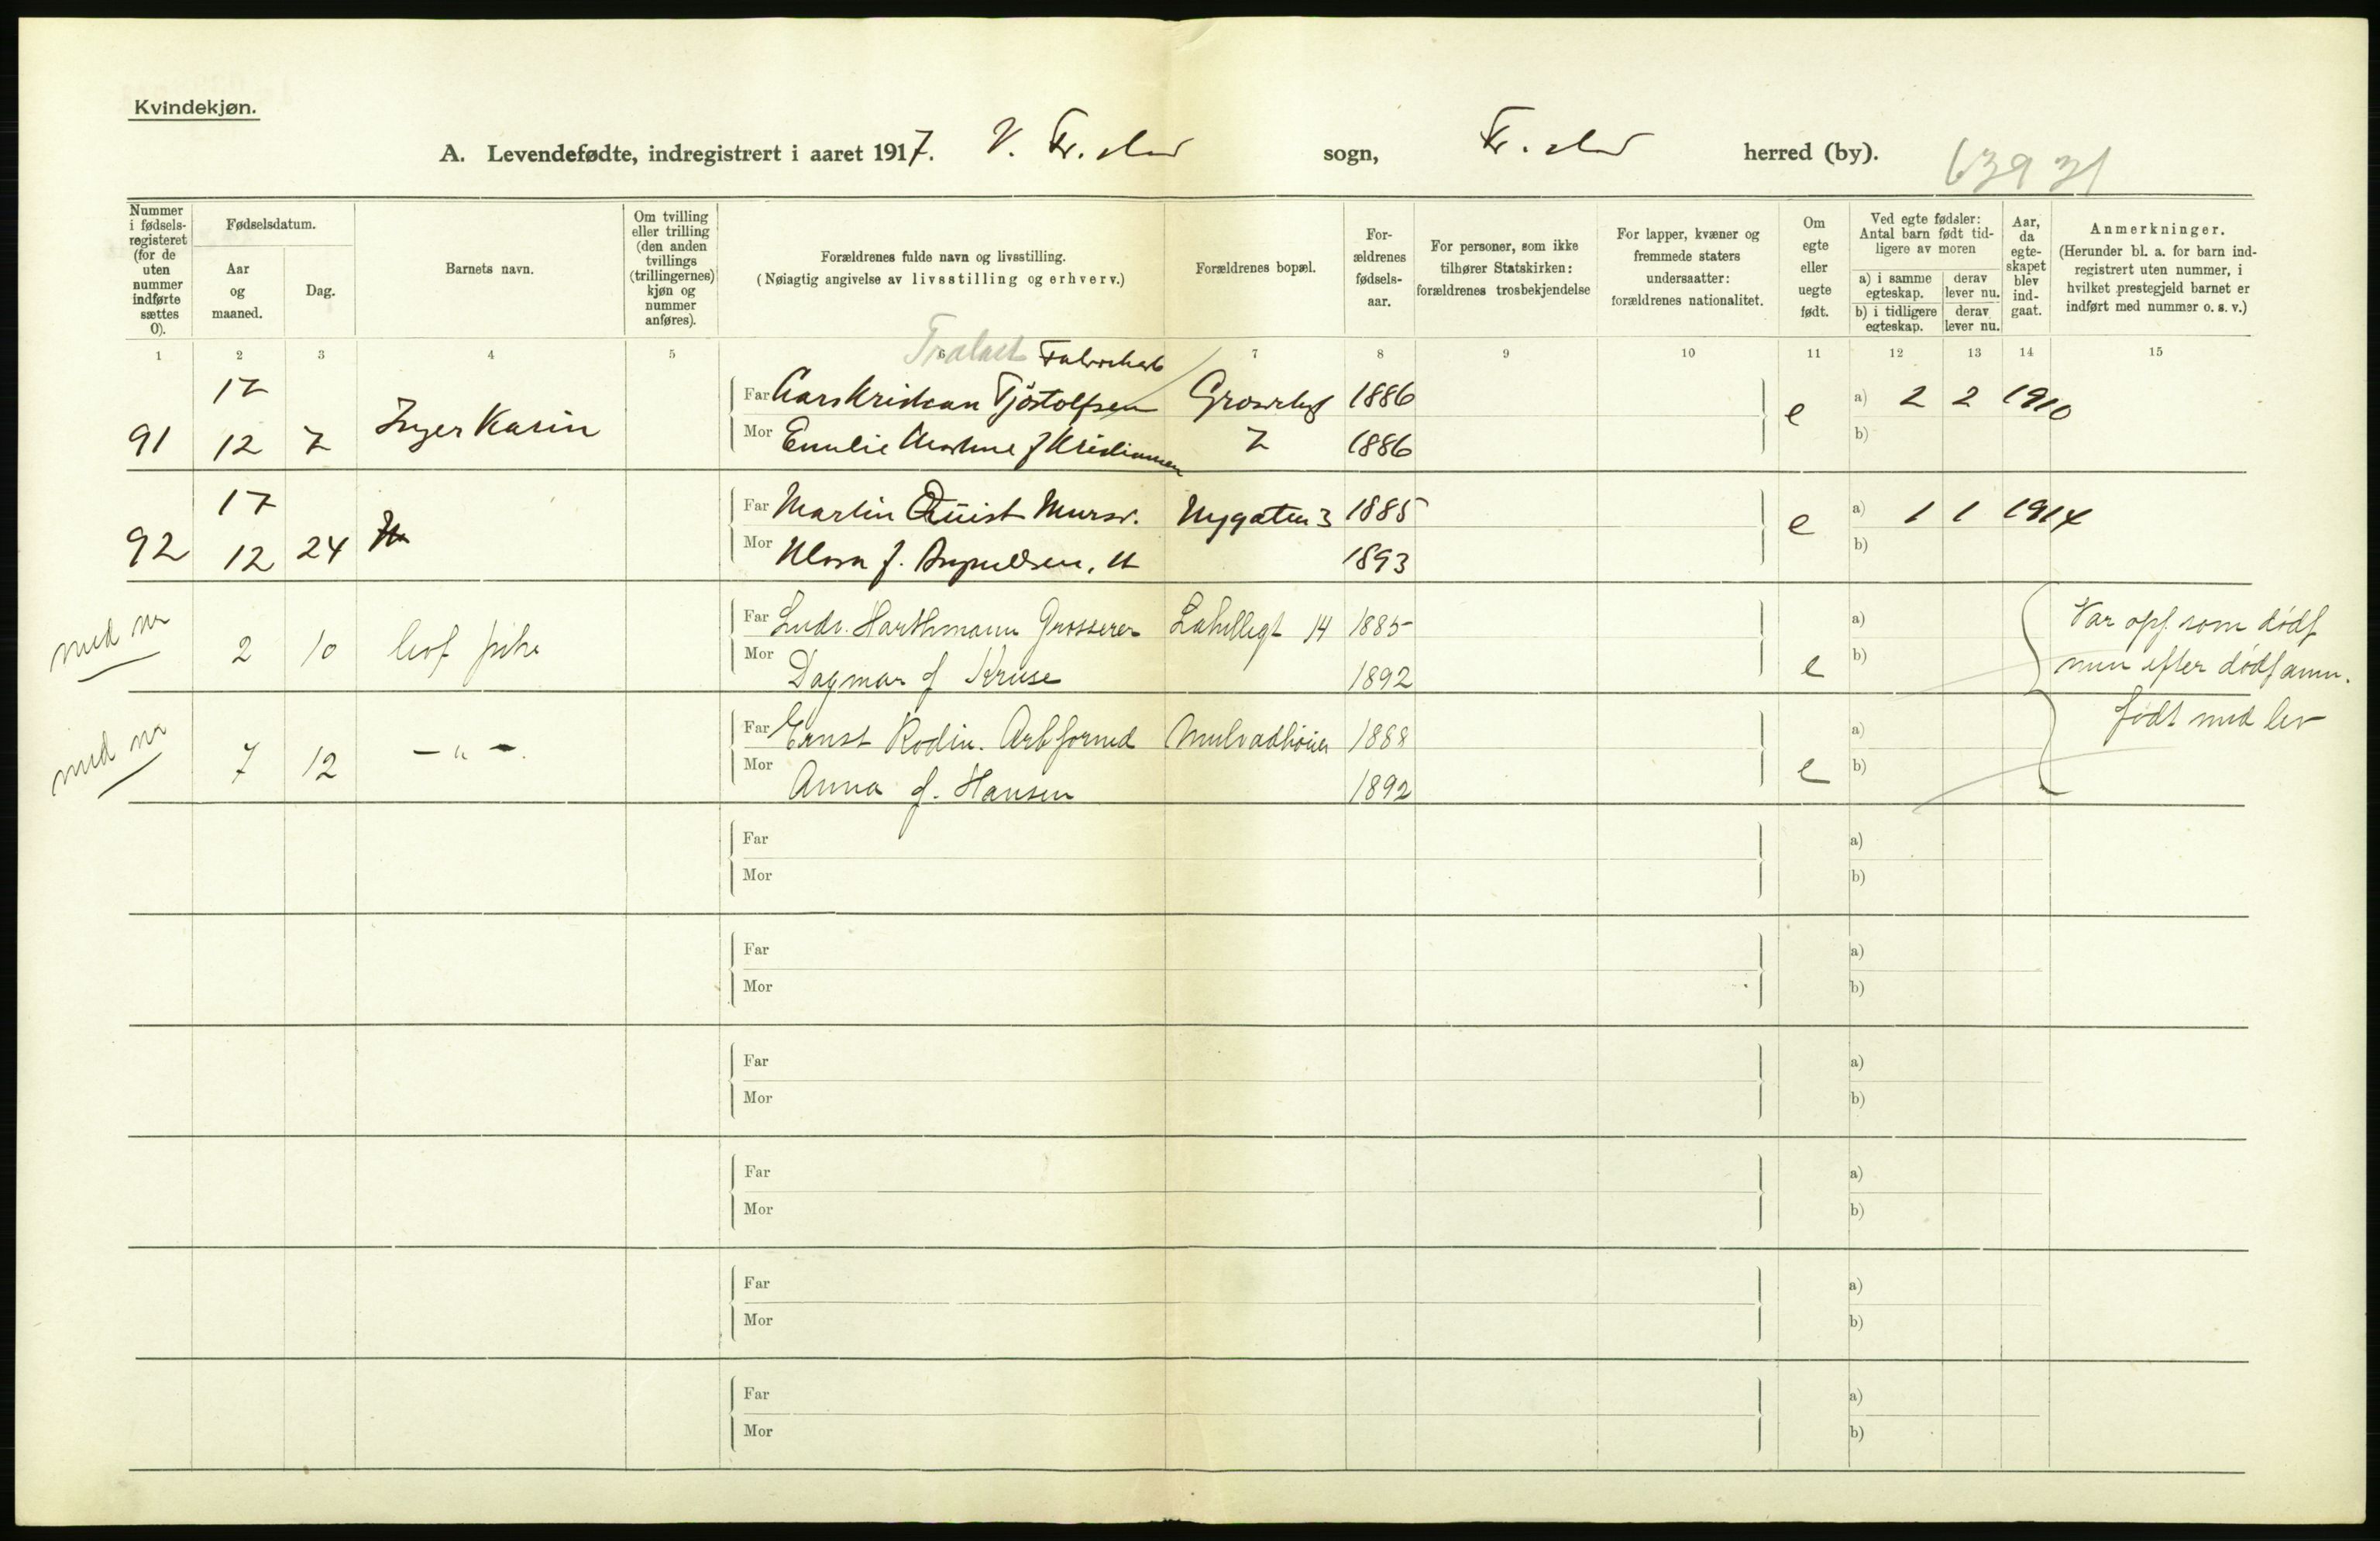 Kvindekjøn.
A. Levendefødte, indregistrert i aaret 1917. V. Fr.stad sogn, Fr.stad herred (by). 639 31
Nummer i fødsels-registeret (for de uten nummer indførte sættes 0).
Fødselsdatum.
Aar og maaned.
Dag.
Barnets navn.
Om tvilling eller trilling (den anden tvillings (trillingernes) kjøn og nummer anføres).
Forældrenes fulde navn og livsstilling.
(Nøiagtig angivelse av livsstilling og erhverv.)
Forældrenes bopæl.
For-ældrenes fødsels-aar.
For personer, som ikke tilhører Statskirken: forældrenes trosbekjendelse
For lapper, kvæner og fremmede staters undersaatter: forældrenes nationalitet.
Om egte eller uegte født.
Ved egte fødsler: Antal barn født tid-ligere av moren
a) i samme egteskap. derav lever nu.
b) i tidligere egteskap. derav lever nu.
Aar, da egte-skapet blev ind-gaat.
Anmerkninger.
(Herunder bl. a. for barn ind-registrert uten nummer, i hvilket prestegjeld barnet er indført med nummer o. s. v.)
1 2 3 4 5 6 7 8 9 10 11 12 13 14 15
17
Far Kristian Tjöstolfsen 1886 e a) 2 2 1910
91 12 7 Inger Karin
Mor Emilie f Kristiansen 7 1886 b)
17
Far Martin Quist Mursv. Nygaten 3 1885 e a) 1 1 1914
92 12 24
Mor Klara f. 1893 b)
med nr
Far Ludv. Harthmann Grosserer 14 1885 a) Var opf. som dødf
2 10 levf pike
Mor Dagmar f Kruse 1892 e b) men efter dødfanm.
født med liv
med nr
Far Ernst Rodin. Arbformd 1888 a)
7 12 - " -.
Mor Anna f. Hansen 1892 e b)
Far a)
Mor b)
Far a)
Mor b)
Far a)
Mor b)
Far a)
Mor b)
Far a)
Mor b)
Far a)
Mor b)